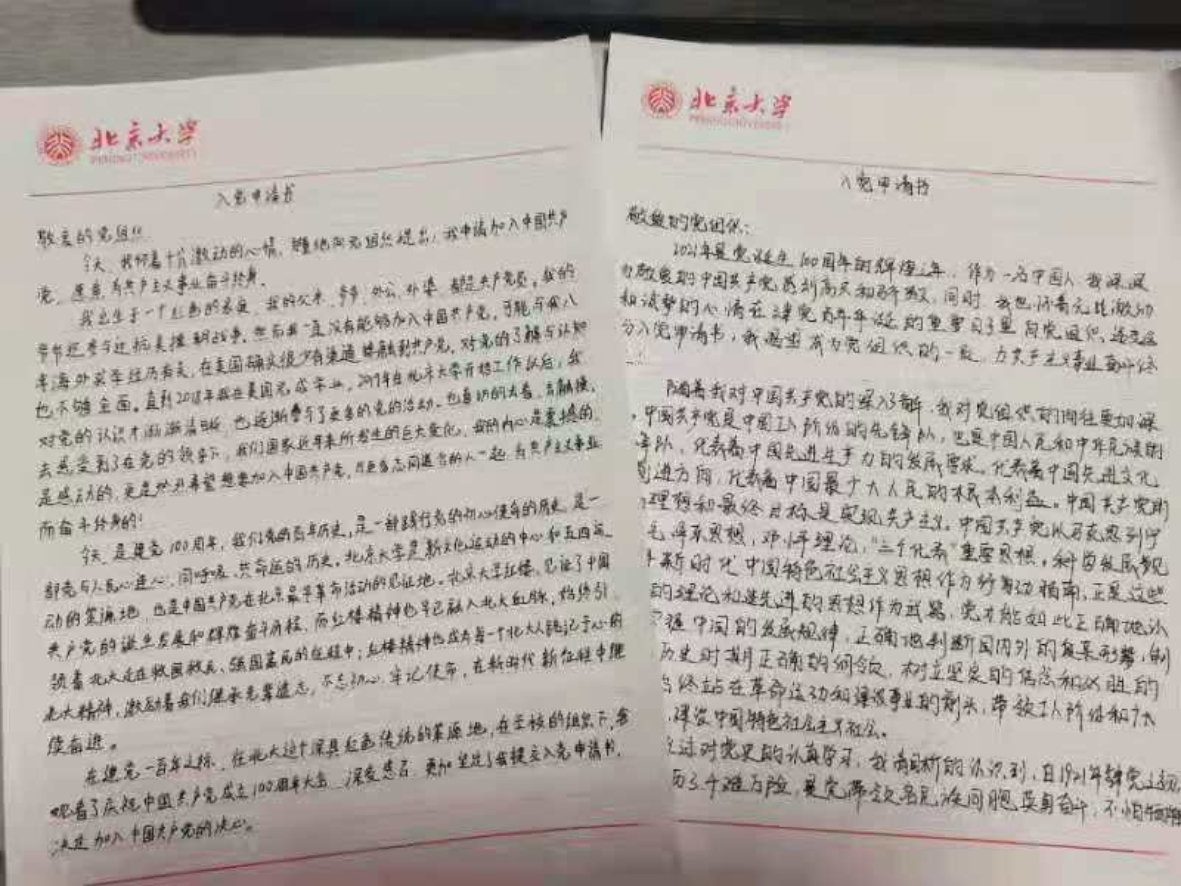 北京大学
PEKING UNIVERSITY
入党申请书
敬爱的党组织
今天，我怀着十分激动的心情，郑重地向党组织提出，我申请加入中国共产
党，愿意为共产主义事业奋斗终身。
我出生于一个红色的家庭，我的父亲、爷爷、外公、外婆，都是共产党员。我的
爷爷还参与过抗美援朝战争。然而我一直没有能够加入中国共产党，可能与我八
年海外求学经历有关，在美国确实很少有渠道接触到共产党，对党的了解与认知
也不够全面。直到2018年我在美国完成学业，2019年在北京大学开始工作以后，我
对党的认识才渐渐清晰，也逐渐参与了更多的党的活动。也真切的去看、去触摸、
去感受到了在党的领导下，我们国家近年来所发生的巨大变化，我的内心是震撼的、
是感动的，更是热烈希望想要加入中国共产党，与更多志同道合的人一起，为共产主义事业
而奋斗终身的！
今天，是建党100周年，我们党的百年历史，是一部践行党的初心使命的历史，是一
部党与人民心连心、同呼吸、共命运的历史。北京大学是新文化运动的中心和五四运
动的策源地，也是中国共产党在北京最早革命活动的见证地。北京大学红楼，见证了中国
共产党的诞生发展和辉煌奋斗历程，而红楼精神也早已融入北大血脉，始终引
领着北大走在救国救民、强国富民的征程中；红楼精神也成为每一个北大人铭记于心的
北大精神，激励着我们继承先辈遗志，不忘初心，牢记使命，在新时代新征程中继
续奋进。
在建党一百年之际，在北大这个深具红色传统的策源地，在学校的组织下，我
观看了庆祝中国共产党成立100周年大会，深受感召，更加坚定了我提交入党申请书，
决定加入中国共产党的决心。
北京大学
PEKING UNIVERSITY
入党申请书
敬爱的党组织：
2021年是党诞生100周年的辉煌之年，作为一名中国人，我深深
为敬爱的中国共产党感到高兴和骄傲，同时，我也怀着无比激动
和读梦的心情在建党百年华诞的重要日子里向党组织递交这
份入党申请书，我渴望成为党组织的一员，为共产主义事业奋斗终
随着我对中国共产党的深入了解，我对党组织的向往更加深
中国共产党是中国工人阶级的先锋队，也是中国人民和中华民族的
锋队，代表着中国先进生产力的发展要求，代表着中国先进文化
前进方向，代表着中国最广大人民的根本利益。中国共产党的
理想和最终目标是实现共产主义。中国共产党以马克思列宁
毛泽东思想，邓小平理论，“三个代表”重要思想，科学发展观
新时代中国特色社会主义思想作为行动指南，正是这些
的理论和先进的思想作为武器，党才能如此正确地认
掌握中国的发展规律，正确地判断国内外的复杂形势，制
历史时期正确的纲领，树立坚定的信念和必胜的
始终站在革命运动和建设事业的前头，带领工人阶级和广大
建设中国特色社会主义社会。
通过对党史的认真学习，我清晰的认识到，自1921年建党之初
历了千难万险，是党带领各民族同胞英勇奋斗，不怕牺牲